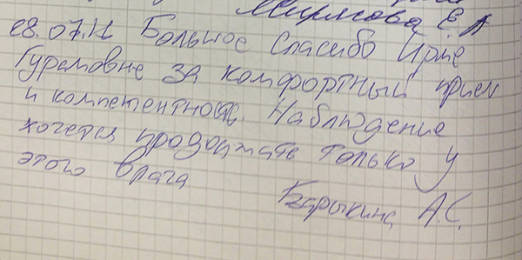 Миронова Е. А
28.07.12 Большое Спасибо Ирме
Гурамовне за комфортный прием
и компетентность. Наблюдение
хочется продолжать только у
этого врача
Барыкина А.С.